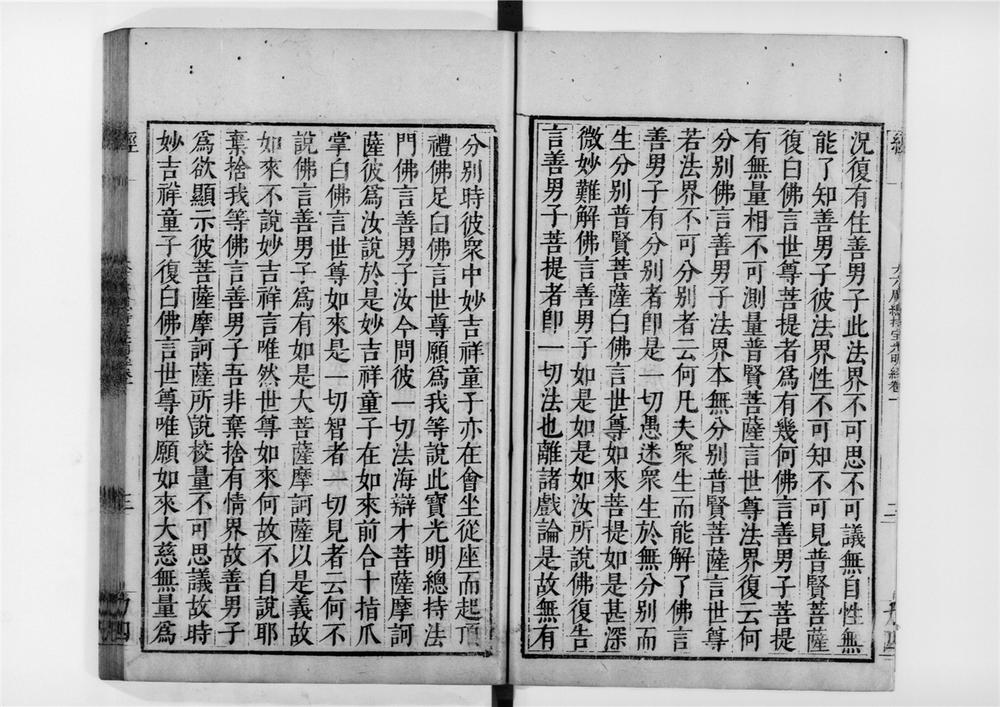 況復有住善男子此法界不可思不可議無自性無
能了知善男子彼法界性不可知不可見普賢菩薩
復白佛言世尊菩提者爲有幾何佛言善男子菩提
有無量相不可測量普賢菩薩言世尊法界復云何
分別佛言善男子法界本無分別普賢菩薩言世尊
若法界不可分別者云何凡夫衆生而能解了佛言
善男子有分別者卽是一切愚迷衆生於無分別而
生分別普賢菩薩白佛言世尊如來菩提如是甚深
微妙難解佛言善男子如是如是如汝所說佛復告
言善男子菩提者卽一切法也離諸戲論是故無有
分別時彼衆中妙吉祥童子亦在會坐從座而起頂
禮佛足白佛言世尊願爲我等說此寶光明總持法
門佛言善男子汝今問彼一切法海辯才菩薩摩訶
薩彼爲汝說於是妙吉祥童子在如來前合十指爪
掌白佛言世尊如來是一切智者一切見者云何不
說佛言善男子爲有如是大菩薩摩訶薩以是義故
如來不說妙吉祥言唯然世尊如來何故不自說耶
棄捨我等佛言善男子吾非棄捨有情界故善男子
爲欲顯示彼菩薩摩訶薩所說校量不可思議故時
妙吉祥童子復白佛言世尊唯願如來大慈無量爲
經
三
四